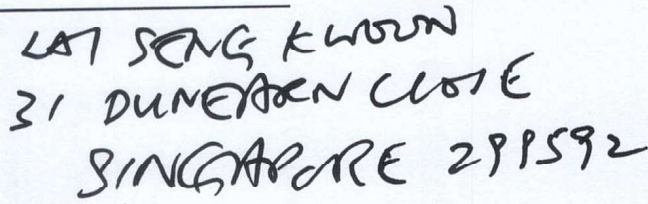 LAI SENG KWOON
31 DUNEARN CLOSE
SINGAPORE 299592